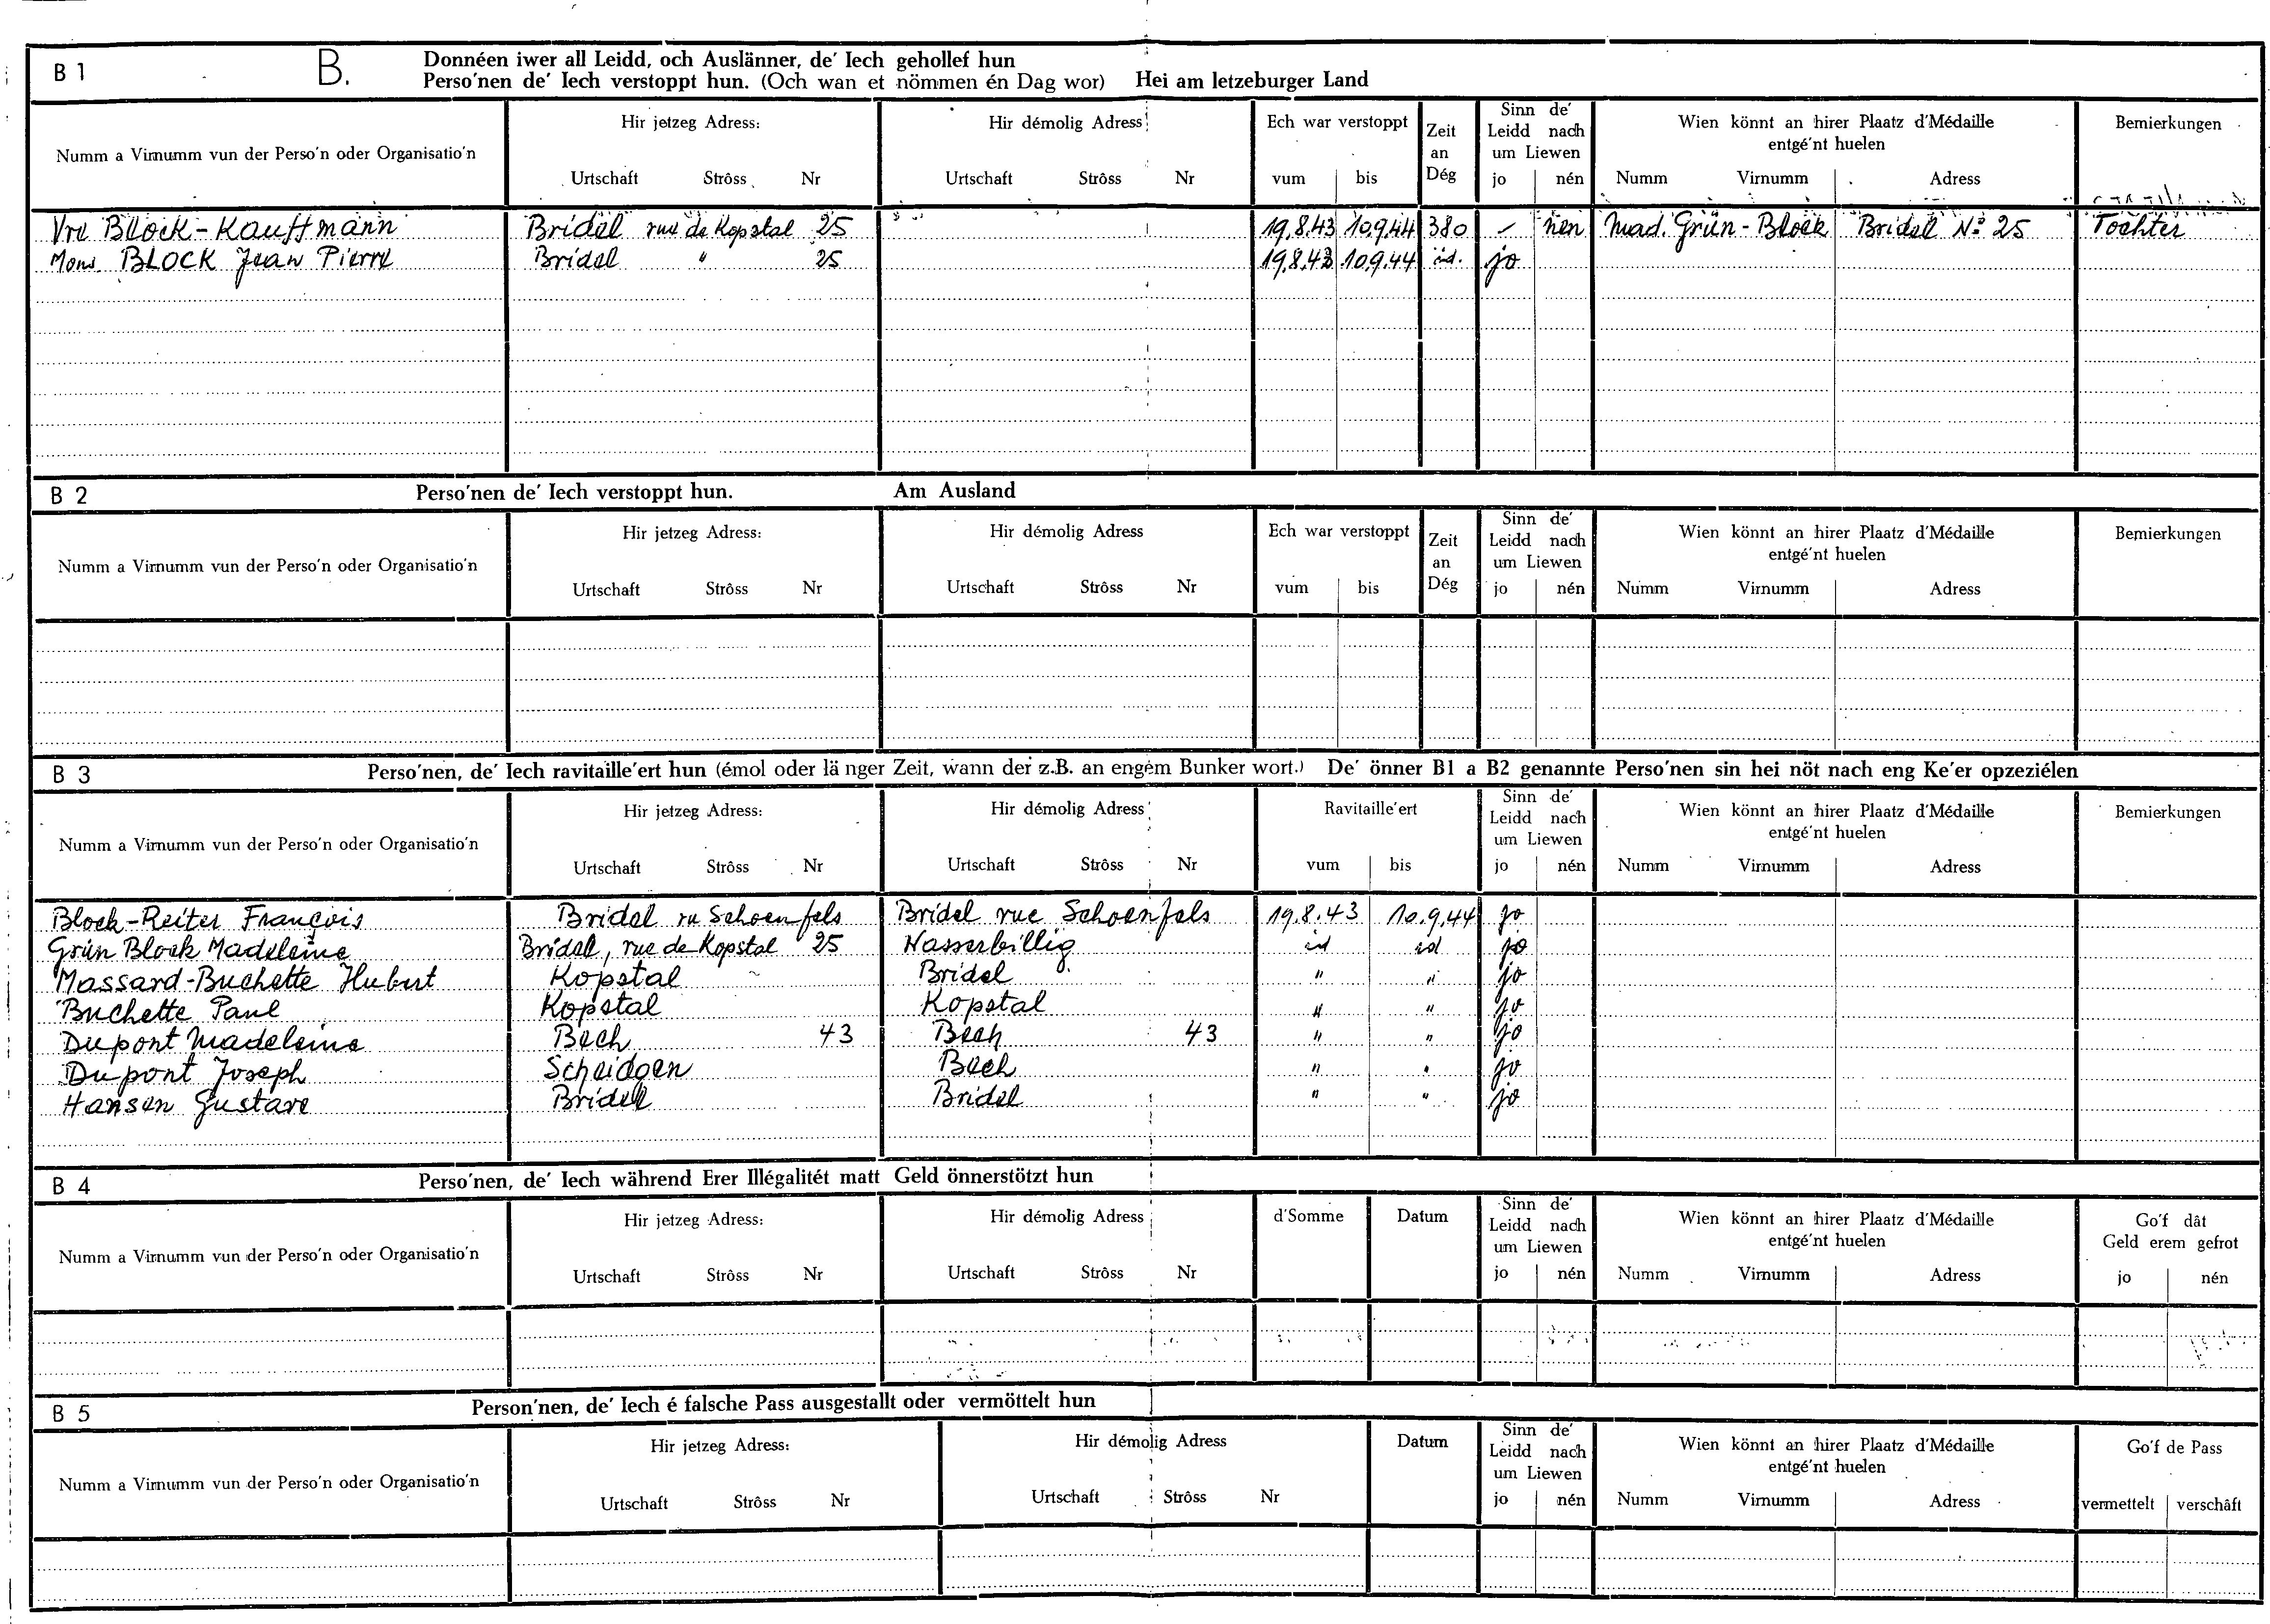 B 1 B. Donnéen iwer all Leidd, och Auslänner, de' Iech gehollef hun
Perso'nen de' Iech verstoppt hun. (Och wan et nömmen én Dag wor) Hei am letzeburger Land
Numm a Virnumm vun der Perso'n oder Organisatio'n
Hir jetzeg Adress:
Urtschaft Strôss Nr
Hir démolig Adress
Urtschaft Strôss Nr
Ech war verstoppt
vum bis
Zeit
an
Dég
Sinn de'
Leidd nach
um Liewen
jo nén
Wien könnt an hirer Plaatz d'Médaille
entgé'nt huelen
Numm Virnumm Adress
Bemierkungen
Vve Block-Kauffmann Bridel rue de Kopstal 25 19.8.43 10.9.44 380 - nén Mad. Grün-Block Bridel No 25 Tochter
Mons. BLOCK Jean Pierre Bridel " 25 19.8.43 10.9.44 id. jo
B 2 Perso'nen de' Iech verstoppt hun. Am Ausland
Numm a Virnumm vun der Perso'n oder Organisatio'n
Hir jetzeg Adress:
Urtschaft Strôss Nr
Hir démolig Adress
Urtschaft Strôss Nr
Ech war verstoppt
vum bis
Zeit
an
Dég
Sinn de'
Leidd nach
um Liewen
jo nén
Wien könnt an hirer Plaatz d'Médaille
entgé'nt huelen
Numm Virnumm Adress
Bemierkungen
B 3 Perso'nen, de' Iech ravitaille'ert hun (émol oder länger Zeit, wann der z.B. an engem Bunker wort.) De' önner B1 a B2 genannte Perso'nen sin hei nöt nach eng Ke'er opzeziélen
Numm a Virnumm vun der Perso'n oder Organisatio'n
Hir jetzeg Adress:
Urtschaft Strôss Nr
Hir démolig Adress
Urtschaft Strôss Nr
Ravitaille'ert
vum bis
Sinn de'
Leidd nach
um Liewen
jo nén
Wien könnt an hirer Plaatz d'Médaille
entgé'nt huelen
Numm Virnumm Adress
Bemierkungen
Block-Reiter François Bridel ru Schoenfels Bridel rue Schoenfels 19.8.43 10.9.44 jo
Grün Block Madeleine Bridel, rue de Kopstal 25 Wasserbillig id id jo
Massard-Buchette Hubert Kopstal Bridel " " jo
Buchette Paul Kopstal Kopstal " " jo
Dupont Madeleine Bech 43 Bech 43 " " jo
Dupont Joseph Scheidgen Bech " " jo
Hansen Gustave Bridel Bridel " " jo
B 4 Perso'nen, de' Iech während Erer Illégalitét matt Geld önnerstötzt hun
Numm a Virnumm vun der Perso'n oder Organisatio'n
Hir jetzeg Adress:
Urtschaft Strôss Nr
Hir démolig Adress
Urtschaft Strôss Nr
d'Somme
Datum
Sinn de'
Leidd nach
um Liewen
jo nén
Wien könnt an hirer Plaatz d'Médaille
entgé'nt huelen
Numm Virnumm Adress
Go'f dât
Geld erem gefrot
jo nén
B 5 Person'nen, de' Iech é falsche Pass ausgestallt oder vermöttelt hun
Numm a Virnumm vun der Perso'n oder Organisatio'n
Hir jetzeg Adress:
Urtschaft Strôss Nr
Hir démolig Adress
Urtschaft Strôss Nr
Datum
Sinn de'
Leidd nach
um Liewen
jo nén
Wien könnt an hirer Plaatz d'Médaille
entgé'nt huelen
Numm Virnumm Adress
Go'f de Pass
vermettelt verschâft